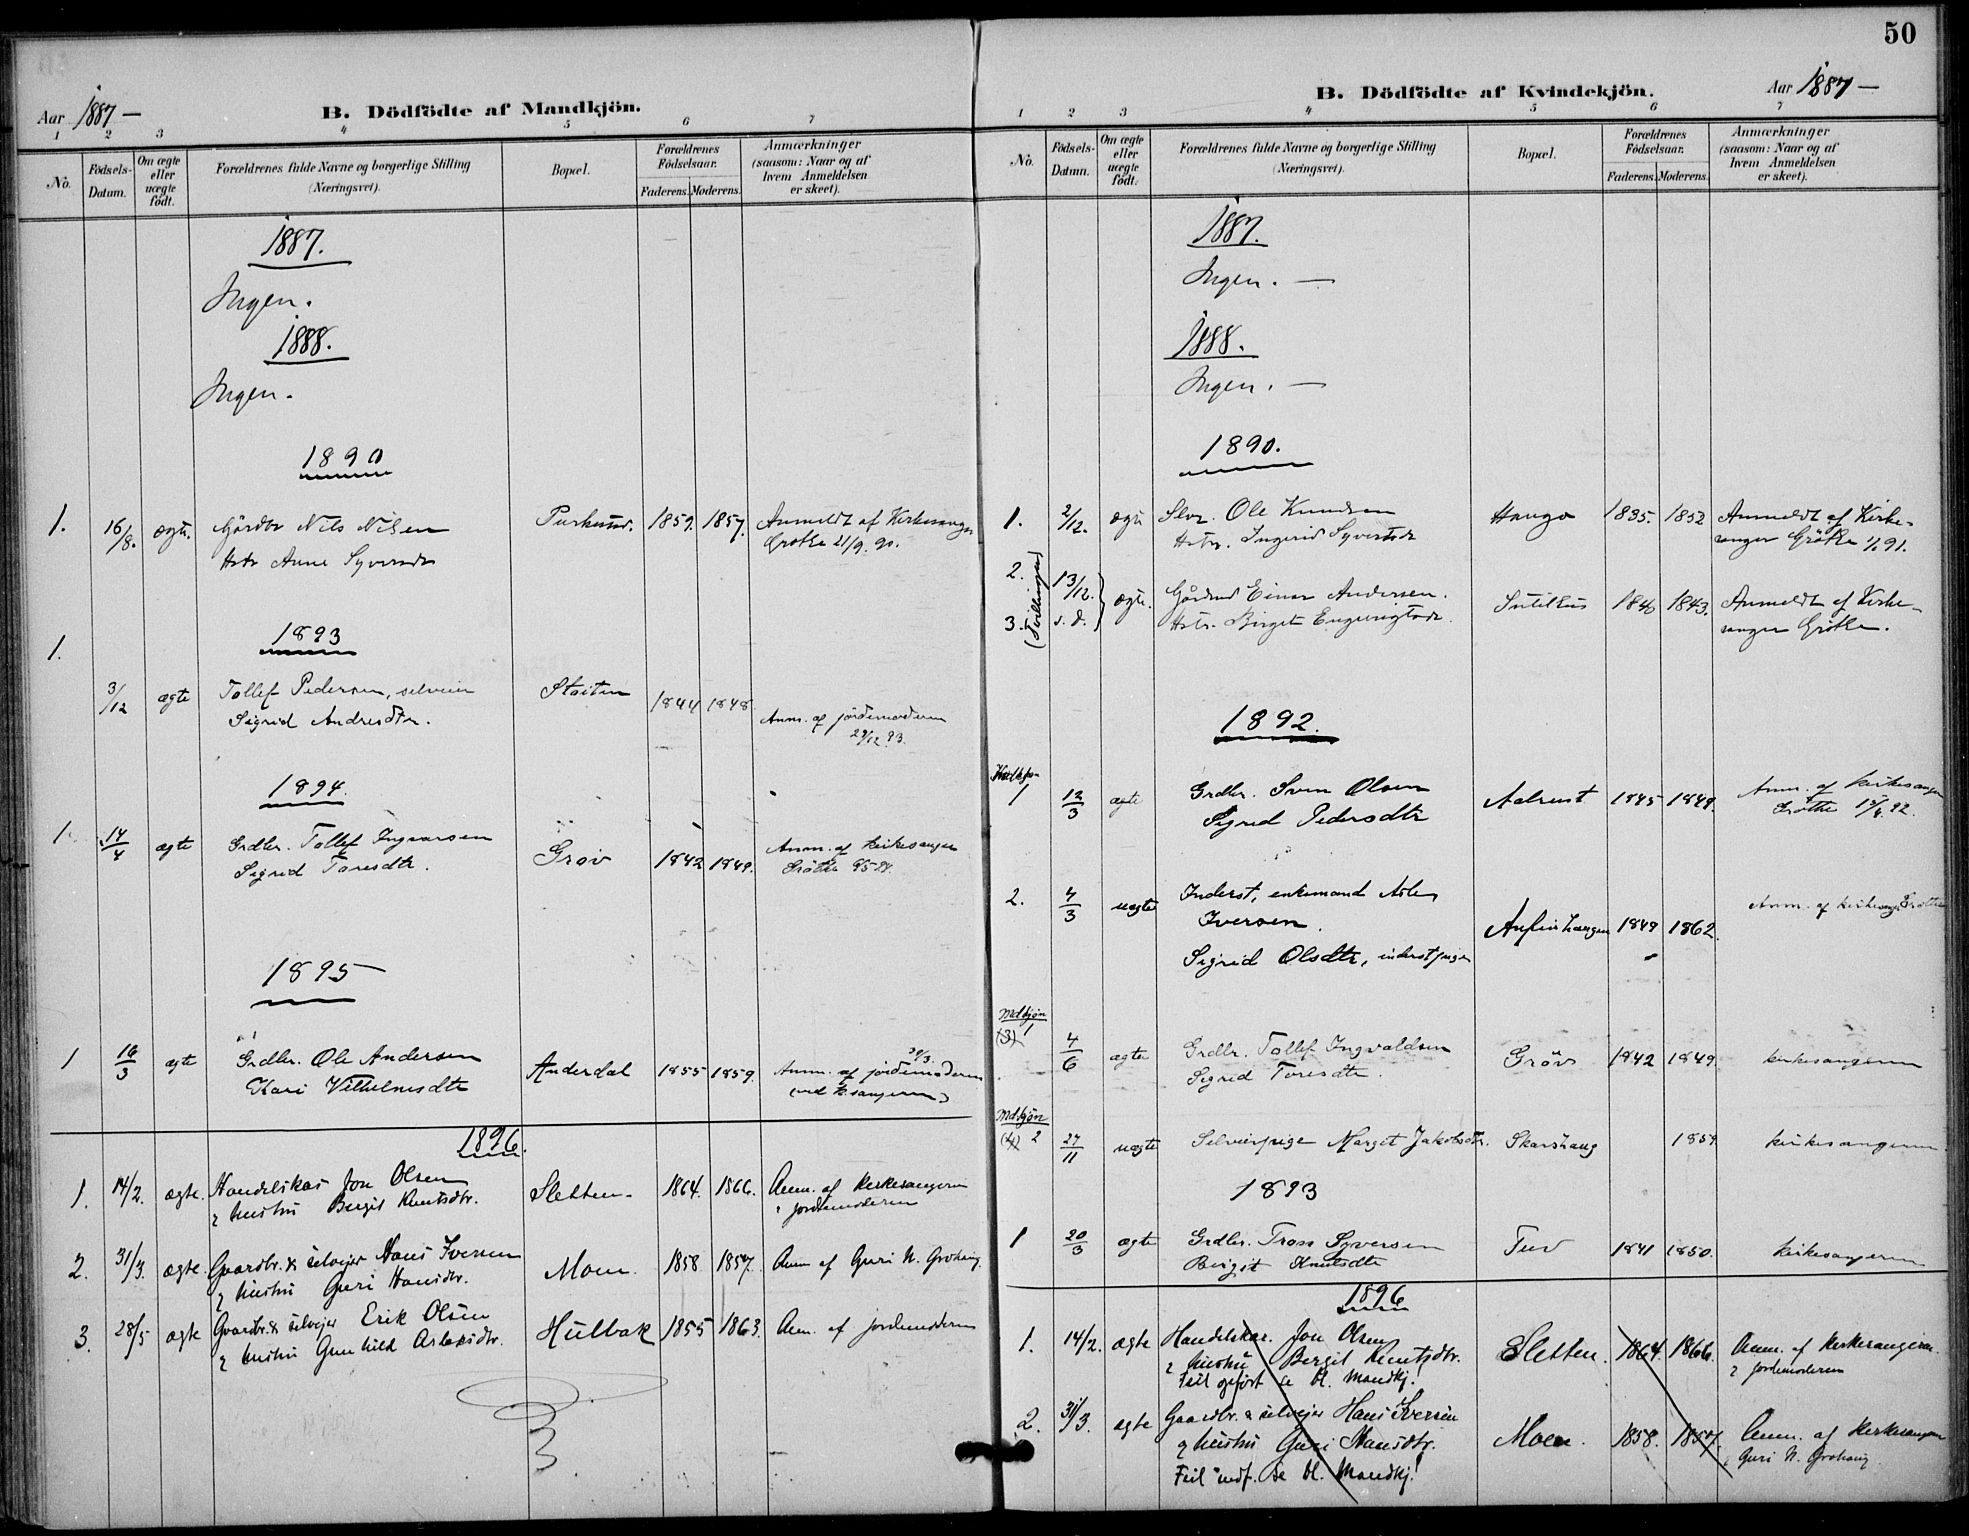 50
Aar 1887 —
B. Dödfödte af Mandkjön.
1 2 3 4 5 6 7
No.
Födsels-
Datum.
Om ægte
eller
uægte
födt.
Forældrenes fulde Navne og borgerlige Stilling
(Næringsvei).
Bopæl.
Forældrenes
Födselsaar.
Faderens. Moderens.
Anmærkninger
(saasom: Naar og af
hvem Anmeldelsen
er skeet).
1887.
Ingen.
1888.
Ingen.
1890
1. 16/8. ægte. Gårdbr Nils Nilsen 1859. 1857. Anmeldt af Kirkesanger
Hstr Anne Syversdr Grøthe 21/9. 90.
1893
1.
3/12 ægte Tollef Pedersen, selveier Støiten 1844 1848
Sigrid Andresdtr. Anm. af jordemoderen
29/12 93.
1894.
1 14/4 ægte Grdbr. Tollef Ingvarsen Grøv 1842 1849. Anm. af kirkesanger
Sigrid Toresdtr. Gröthe
1895
1 16/3 ægte Grdbr. Ole Andersen Anderdal 1855 1859. Anm. af jordemoderen
Kari Vilhelmsdtr (ved k.sangeren)
1896.
1. 14/2. ægte. Handelskar Jon Olsen Sletten. 1864. 1866. Anm. af kirkesangeren
& hustru Bergit Knutsdtr. & jordemoderen
2. 31/3. ægte. Gaardbr. & selvejer Hans Iversen Moen. 1858 1857. Anm af Guri N. Grøhaug.
& hustru Guri Hansdtr.
3. 28/5 ægte Gaardbr. & selvejer Erik Olsen Hulbak 1855 1863. Anm. af jordemoderen
& hustru Gunhild Aslaksdtr.
Aar 1887 —
B. Dödfödte af Kvindekjön.
1 2 3 4 5 6 7
No.
Födsels-
Datum.
Om ægte
eller
uægte
födt.
Forældrenes fulde Navne og borgerlige Stilling
(Næringsvei).
Bopæl.
Forældrenes
Födselsaar.
Faderens. Moderens.
Anmærkninger
(saasom: Naar og af
hvem Anmeldelsen
er skeet).
1887.
Ingen. —
1888.
Ingen. —
1890.
1. 2/12. ægte Slvr. Ole Knudsen Hauge 1835. 1852 Anmeldt af Kirke-
Hstr. Ingerid Syvertsdr sanger Gröthe 1/1 91.
2. (Tvillinger) 13/12. ægte. Gårdmd Einar Andersen. 1840 1843. Anmeldt af Kirke-
3. s. d. Hstr. Birgit Engebrigtsdr. sanger Grøthe.
1892.
Kvikjø-
1 12/3 ægte Grdbr. Sven Olsen Aalrust 1845 1849. Anm. af kirkesanger
Sigrid Pedersdtr Grøthe 15/4. 92.
2. 4/3 uægte Inderst, enkemand Asle 1849 1862. Anm. af kirkesanger Grøthe
Iversen.
Sigrid Olsdtr, inderstpige
Mdkjøn
(3) 1 4/6 ægte Grdbr. Tollef Ingvaldsen Gröv 1842 1849. kirkesangeren
Sigrid Toresdtr.
Mdkjøn
(4) 2 27/11 uægte Selveierpige Marget Jakobsdtr. Skarshaug 1859 kirkesangeren
1893
1 20/3 ægte Grdbr. Tron Syversen Tuv 1841 1850. kirkesangeren
Bergit Knutsdtr
1896
1. 14/2. ægte Handelskar. Jon Olsen Sletten. 1864. 1866. Anm. af kirkesangeren
& hustru Bergit Knutsdtr. & jordemoderen
Feil opført se bl. Mandkj.!
2. 31/3. ægte Gaardbr. & selvejer Hans Iversen Moen. 1858. 1857. Anm. af Kirkesangeren
& hustru Guri Hansdtr. & Guri N. Grøhaug
Feil indf. se bl. Mandkj!